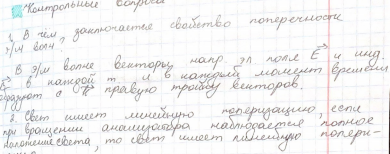 Контрольные вопросы
1. В чём заключается свойство поперечности
э/м волн.
В э/м волне векторы напр. эл. поля E и инд.
B в каждой т. и в каждый момент времени
образуют с правую тройку векторов.
2. Свет имеет линейную поляризацию, если
при вращении анализатора наблюдается полное
света, то свет имеет линейную